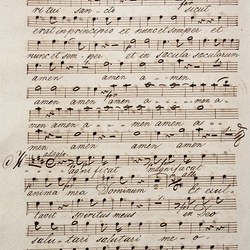 ri tui san - cto sicut
erat in principio et nunc et semper et
nunc et semper et in saecula saeculorum
amen amen a - men
amen amen amen a - - men a
men amen a - men amen a - - -
men amen amen
Magnificat magnificat
anima mea Dominum Et exul -
tavit spiritus meus in Deo
salu - tari salutari me - o